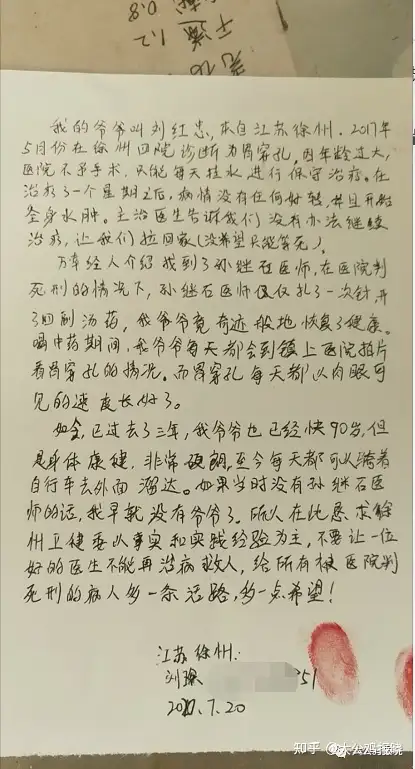 干姜
1.2
0.8
我的爷爷叫刘红忠,来自江苏徐州.2017年
5月份在徐州四院诊断为胃穿孔,因年龄过大,
医院不予手术,只能每天挂水进行保守治疗.在
治疗了一个星期之后,病情没有任何好转,并且开始
全身水肿。主治医生告诉我们没有办法继续
治疗,让我们拉回家(没希望只能等死)。
万幸经人介绍找到了孙继石医师,在医院判
死刑的情况下,孙继石医师仅仅扎了一次针,开
了四副汤药,我爷爷竟奇迹般地恢复了健康。
喝中药期间,我爷爷每天都会到镇上医院拍片
看胃穿孔的情况。而胃穿孔每天都以肉眼可
见的速度长好了。
如今,已过去了三年,我爷爷也已经快90岁,但
是身体康健,非常硬朗,至今每天都可以骑着
自行车去外面溜达。如果当时没有孙继石医
师的话,我早就没有爷爷了。所以在此恳求徐
州卫健委以事实和实践经验为主,不要让一位
好的医生不能再治病救人,给所有被医院判
死刑的病人多一条活路,多一点希望!
江苏徐州:
刘
351
7.20
知乎 @大公鸡报晓